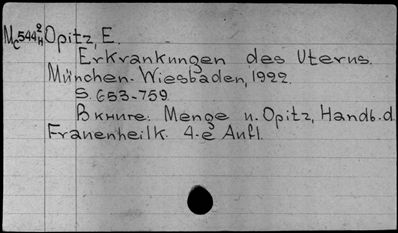 Mc 544 2/H Opitz, E.
Erkrankungen des Uterus.
München-Wiesbaden, 1922.
S. 653-759.
Вкниге: Menge u. Opitz, Handb. d.
Frauenheilk. 4.e Aufl.